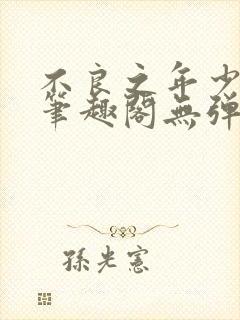 不良之年少
筆趣閣無弾
孫光憲